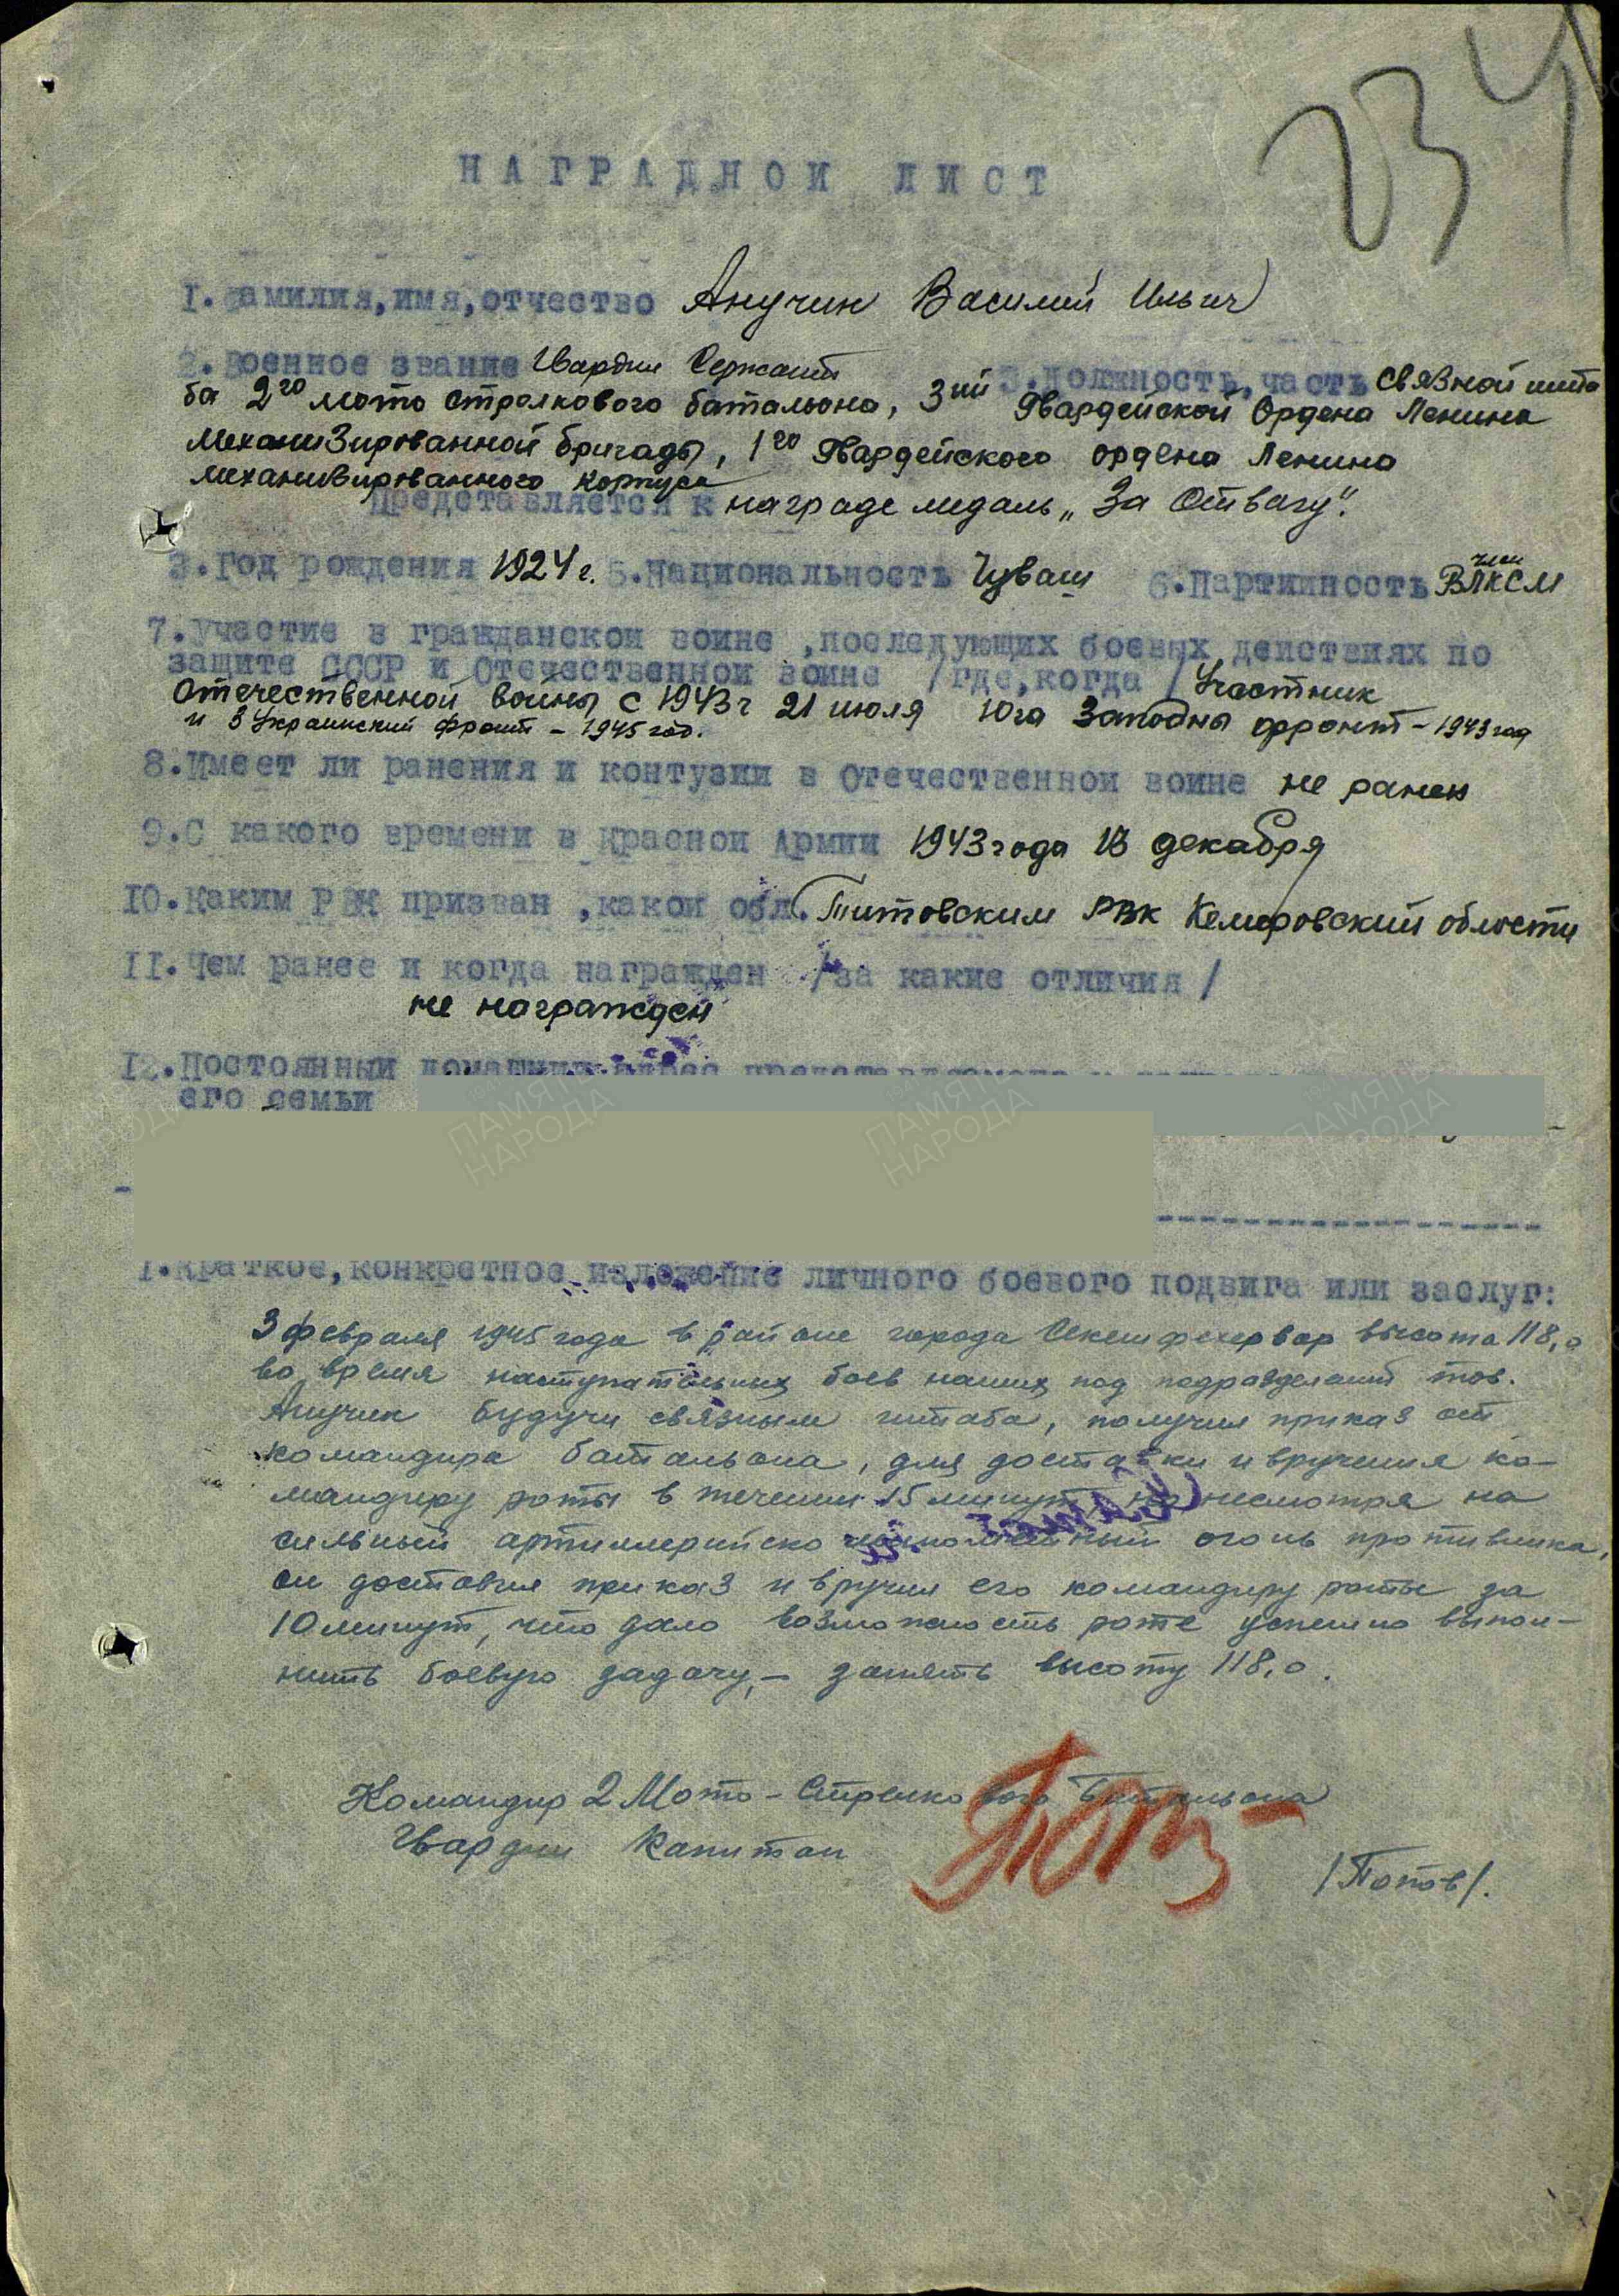 234
НАГРАДНОЙ ЛИСТ
1. Фамилия, имя, отчество Анучин Василий Ильич
2. Военное звание Гвардии Сержант 3. Должность, часть связной шта
ба 2го мото стрелкового батальона, 3ий Гвардейской Ордена Ленина
механизированной бригады, 1го Гвардейского ордена Ленина
механизированного корпуса
Представляется к награде медаль „За Отвагу".
3. Год рождения 1924 г. 5. Национальность Чуваш 6. Партийность член ВЛКСМ
7. Участие в гражданской войне, последующих боевых действиях по
защите СССР и Отечественной войне /где, когда/ Участник
Отечественной войны с 1943 г 21 июля Юга Западны фронт - 1943 год
и 3 Украинский фронт - 1945 год.
8. Имеет ли ранения и контузии в Отечественной войне не ранен
9. С какого времени в Красной Армии 1943 года 18 декабря
10. Каким РВК призван, какой обл. Титовским РВК Кемеровский области
11. Чем ранее и когда награжден /за какие отличия/
не награжден
12. Постоянный домашний адрес представляемого к
его семьи
1. Краткое, конкретное изложение личного боевого подвига или заслуг:
3 февраля 1945 года в районе города Секешфехервар высота 118,0
во время наступательных боев наших под подразделений тов.
Анучин будучи связным штаба, получил приказ от
командира батальона, для доставки и вручения ко-
мандиру роты в течении 15 минут, несмотря на
сильный артиллерийско минометный огонь противника,
он доставил приказ и вручил его командиру роты за
10 минут, что дало возможность роте успешно выпол-
нить боевую задачу, - занять высоту 118,0.
Командир 2 Мото-Стрелкового Батальона
Гвардии Капитан
/Попов/.
ПАМЯТЬ НАРОДА